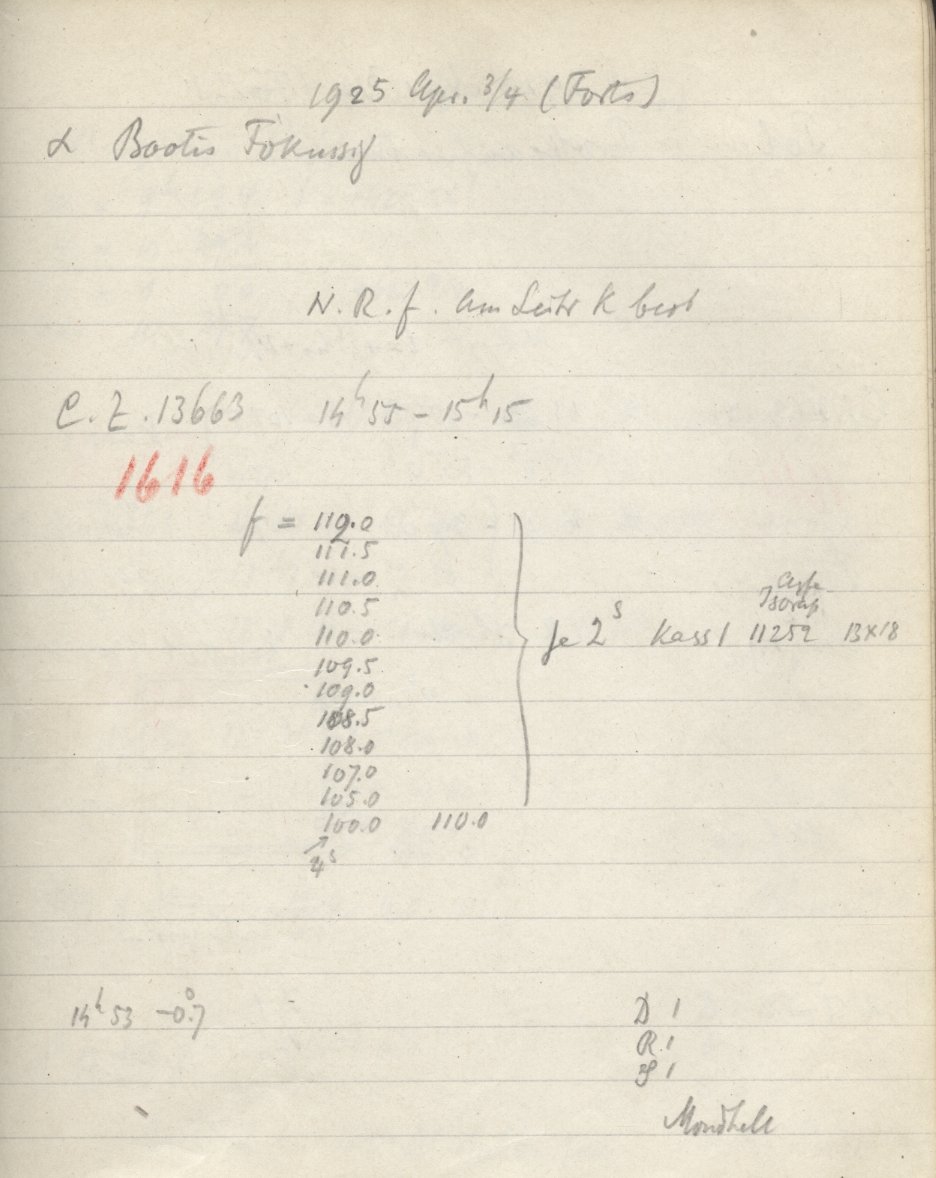 1925 Apr. 3/4 (Forts)
α Bootis Fokussg
N. R. f. am Leitr K beob
C. Z. 13663 14h 55 - 15h 15
1616
f = 112.0
111.5
111.0
110.5
110.0
109.5
109.0
108.5
108.0
107.0
105.0
100.0 110.0
4s
Agfa
Isorap
Je 2s Kass 1 11252 13x18
14h 53 -0.°7
D 1
R 1
1
Mondhell